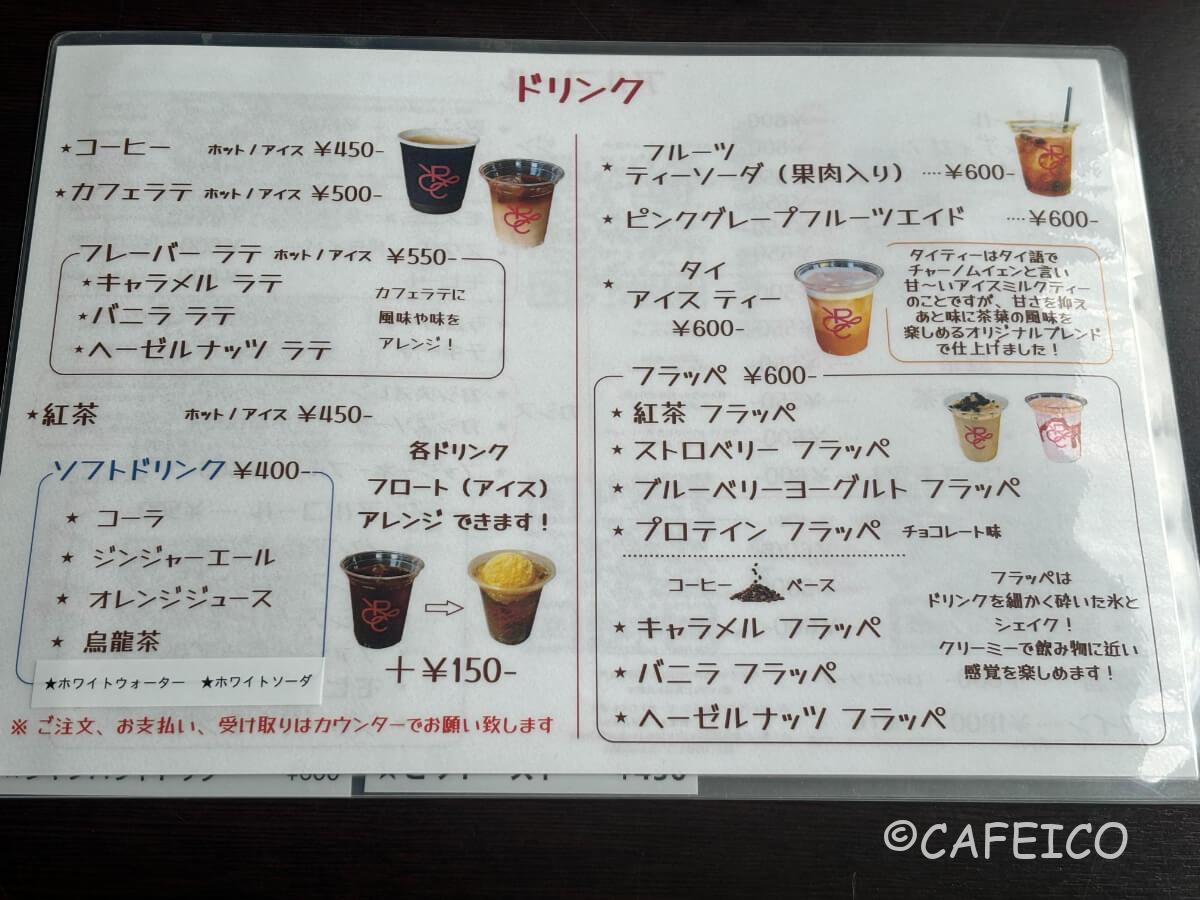 ドリンク
★コーヒー ホット / アイス ¥450-
★カフェラテ ホット / アイス ¥500-
フレーバー ラテ ホット / アイス ¥550-
★キャラメル ラテ
★バニラ ラテ
★ヘーゼルナッツ ラテ
カフェラテに
風味や味を
アレンジ！
★紅茶 ホット / アイス ¥450-
ソフトドリンク ¥400-
★ コーラ
★ ジンジャーエール
★ オレンジジュース
★ 烏龍茶
★ホワイトウォーター ★ホワイトソーダ
各ドリンク
フロート（アイス）
アレンジ できます！
＋¥150-
※ ご注文、お支払い、受け取りはカウンターでお願い致します
★ フルーツ
ティーソーダ（果肉入り） ‥‥¥600-
★ ピンクグレープフルーツエイド ‥‥¥600-
★ タイ
アイス ティー
¥600-
タイティーはタイ語で
チャーノムイェンと言い
甘〜いアイスミルクティー
のことですが、甘さを抑え
あと味に茶葉の風味を
楽しめるオリジナルブレンド
で仕上げました！
フラッペ ¥600-
★ 紅茶 フラッペ
★ ストロベリー フラッペ
★ ブルーベリーヨーグルト フラッペ
★ プロテイン フラッペ チョコレート味
コーヒー ベース
★ キャラメル フラッペ
★ バニラ フラッペ
★ ヘーゼルナッツ フラッペ
フラッペは
ドリンクを細かく砕いた氷と
シェイク！
クリーミーで飲み物に近い
感覚を楽しめます！
©CAFEICO